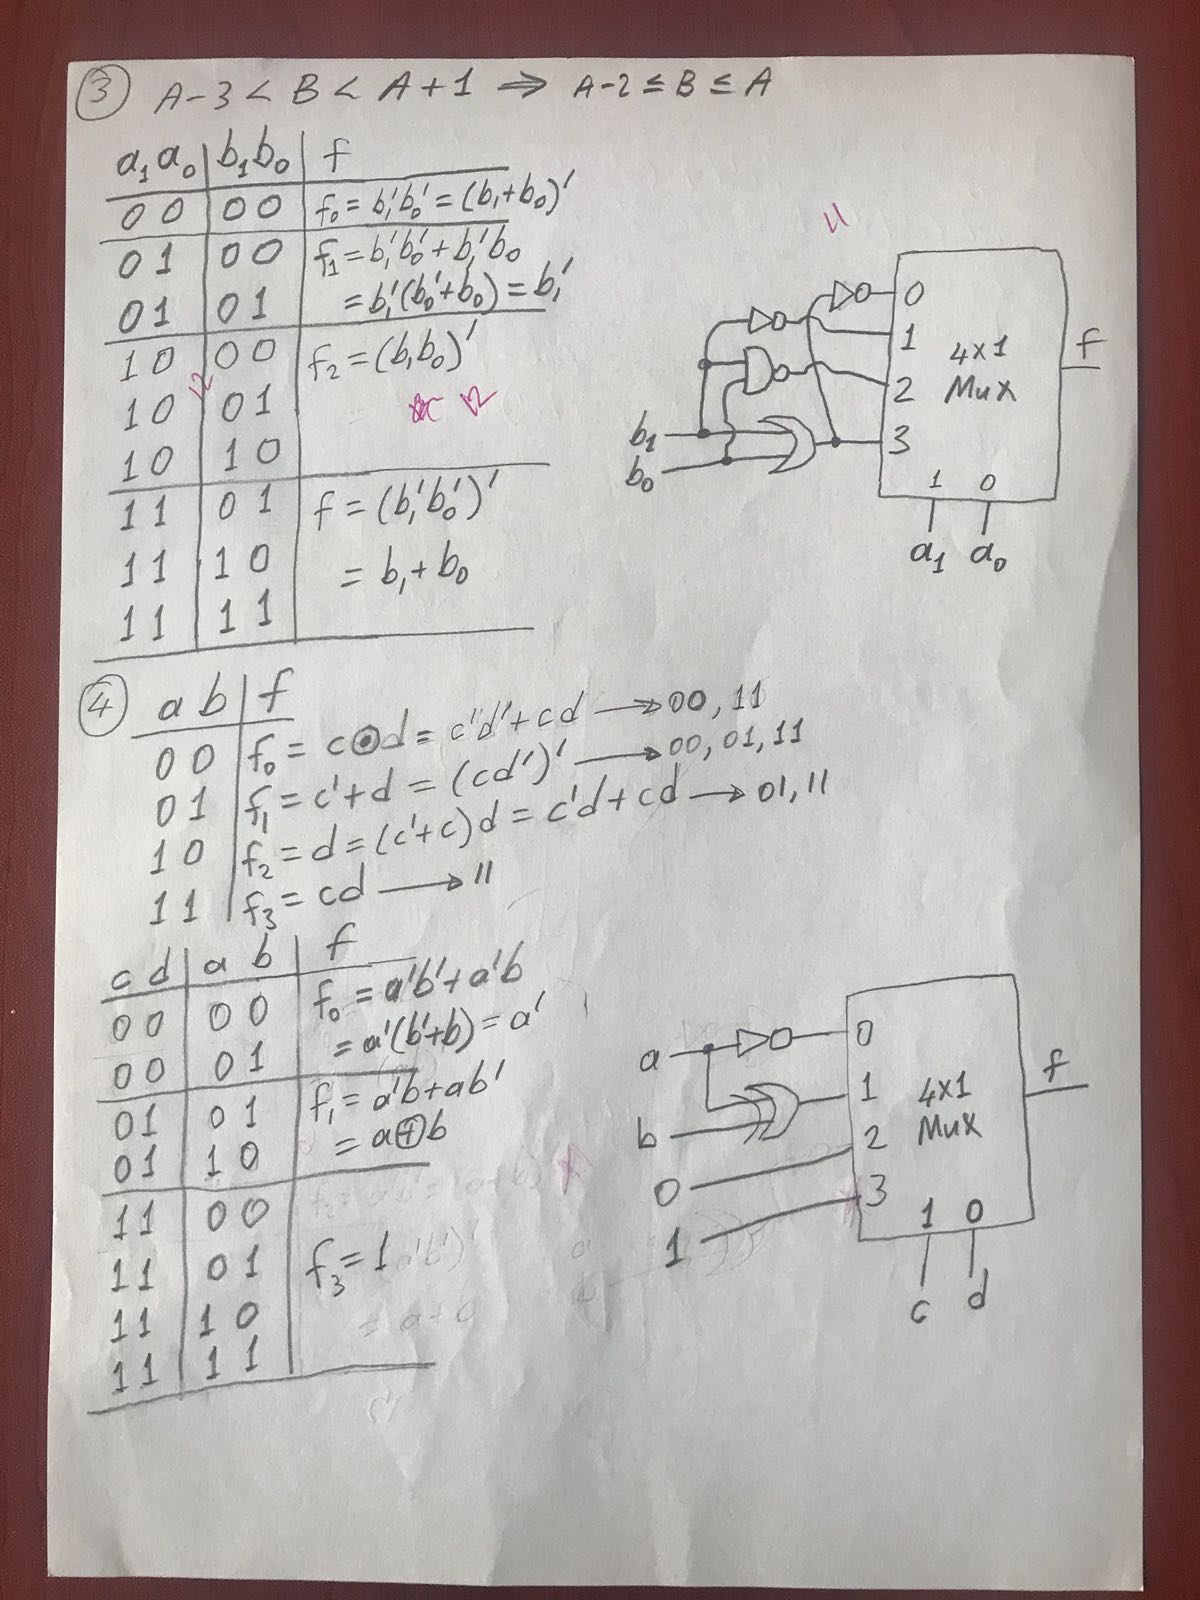 ③ A-3 < B < A+1 ⇒ A-2 ≤ B ≤ A
a₁ a₀ | b₁ b₀ | f
0 0 | 0 0 | f₀ = b₁'b₀' = (b₁+b₀)'
0 1 | 0 0 | f₁ = b₁'b₀' + b₁'b₀
0 1 | 0 1 | = b₁'(b₀'+b₀) = b₁'
1 0 | 0 0 | f₂ = (b₁b₀)'
1 0 | 0 1
1 0 | 1 0
1 1 | 0 1 | f = (b₁'b₀')'
1 1 | 1 0 | = b₁+b₀
1 1 | 1 1
b₁
b₀
0
1
2
3
4x1
Mux
f
1 0
a₁ a₀
④ a b | f
0 0 | f₀ = c⊙d = c'd'+cd → 00, 11
0 1 | f₁ = c'+d = (cd')' → 00, 01, 11
1 0 | f₂ = d = (c'+c)d = c'd+cd → 01, 11
1 1 | f₃ = cd → 11
c d | a b | f
0 0 | 0 0 | f₀ = a'b'+a'b
0 0 | 0 1 | = a'(b'+b) = a'
0 1 | 0 1 | f₁ = a'b+ab'
0 1 | 1 0 | = a⊕b
1 1 | 0 0
1 1 | 0 1 | f₃ = 1
1 1 | 1 0
1 1 | 1 1
a
b
0
1
0
1
2
3
4x1
Mux
f
1 0
c d